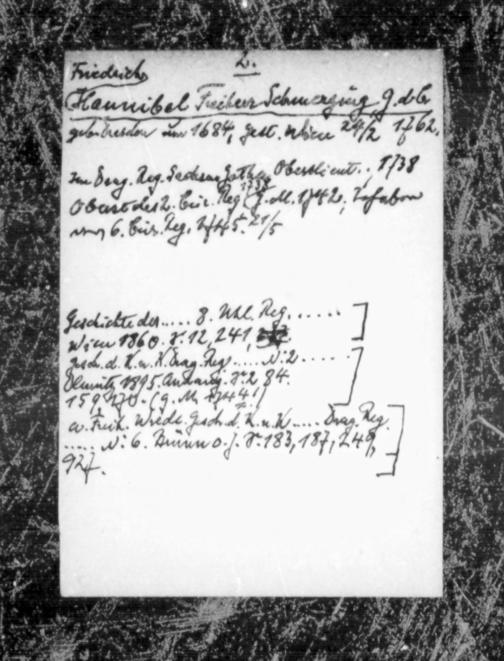 2.
Friedrich
Hannibal Freiherr Schmerzing, G.d.C.
geb. Dresden um 1684, gest. Wien 24/2 1762.
Im Drag. Reg. Sachsen Gotha Oberstlieut., 1738
Oberst des 2. Cür. Reg. 1738 G.M. 1742, Inhaber
vom 6. Cür. Reg. 1745. 21/5
Geschichte des ..... 8. Uhl. Reg. .....
Wien 1860. S. 12, 241,
Gesch. d. K. u. K. Drag. Reg. ..... N: 2 .....
Olmütz 1895. Anhang S. 2 84.
159, 270. (G.M. 1744!)
A. Freih. Wrede. Gesch. d. K. u. K. .... Drag. Reg.
..... N: 6. Brünn o. J. S. 183, 187, 249,
927.